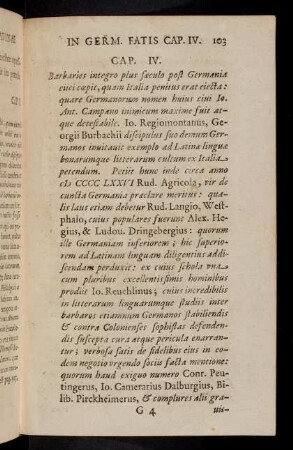 IN GERM. FATIS CAP. IV. 103
CAP. IV.
Barbaries integro plus sæculo post Germania
eiici cœpit, quam Italia penitus erat eiecta:
quare Germanorum nomen huius ciui Io.
Ant. Campano inimicum maxime fuit at-
que detestabile. Io. Regiomontanus, Ge-
orgii Burbachii discipulus suo demum Ger-
manos inuitauit exemplo ad Latina lingua
bonarumque litterarum cultum ex Italia
petendum. Petiit hunc inde circa anno
cIɔ CCCC LXXVI Rud. Agricola, vir de
cuncta Germania præclare meritus: qua-
lis laus etiam debetur Rud. Langio, West-
phalo, cuius populares fuerunt Alex. He-
gius, & Ludou. Dringebergius: quorum
ille Germaniam inferiorem; hic superio-
rem ad Latinam linguam diligentius addi-
scendam perduxit: ex cuius schola vna-
cum pluribus excellentissimis hominibus
prodiit Io. Reuchlinus; cuius incredibilis
in litterarum linguarumque studiis inter
barbaros etiamnum Germanos stabiliendis
& contra Colonienses sophistas defenden-
dis suscepta cura atque pericula enarran-
tur; verbosa satis de fidelibus eius in eo-
dem negotio vrgendo sociis facta mentione:
quorum haud exiguo numero Conr. Peu-
tingerus, Io. Camerarius Dalburgius, Bi-
lib. Pirckheimerus, & complures alii gra-
G 4 uis-